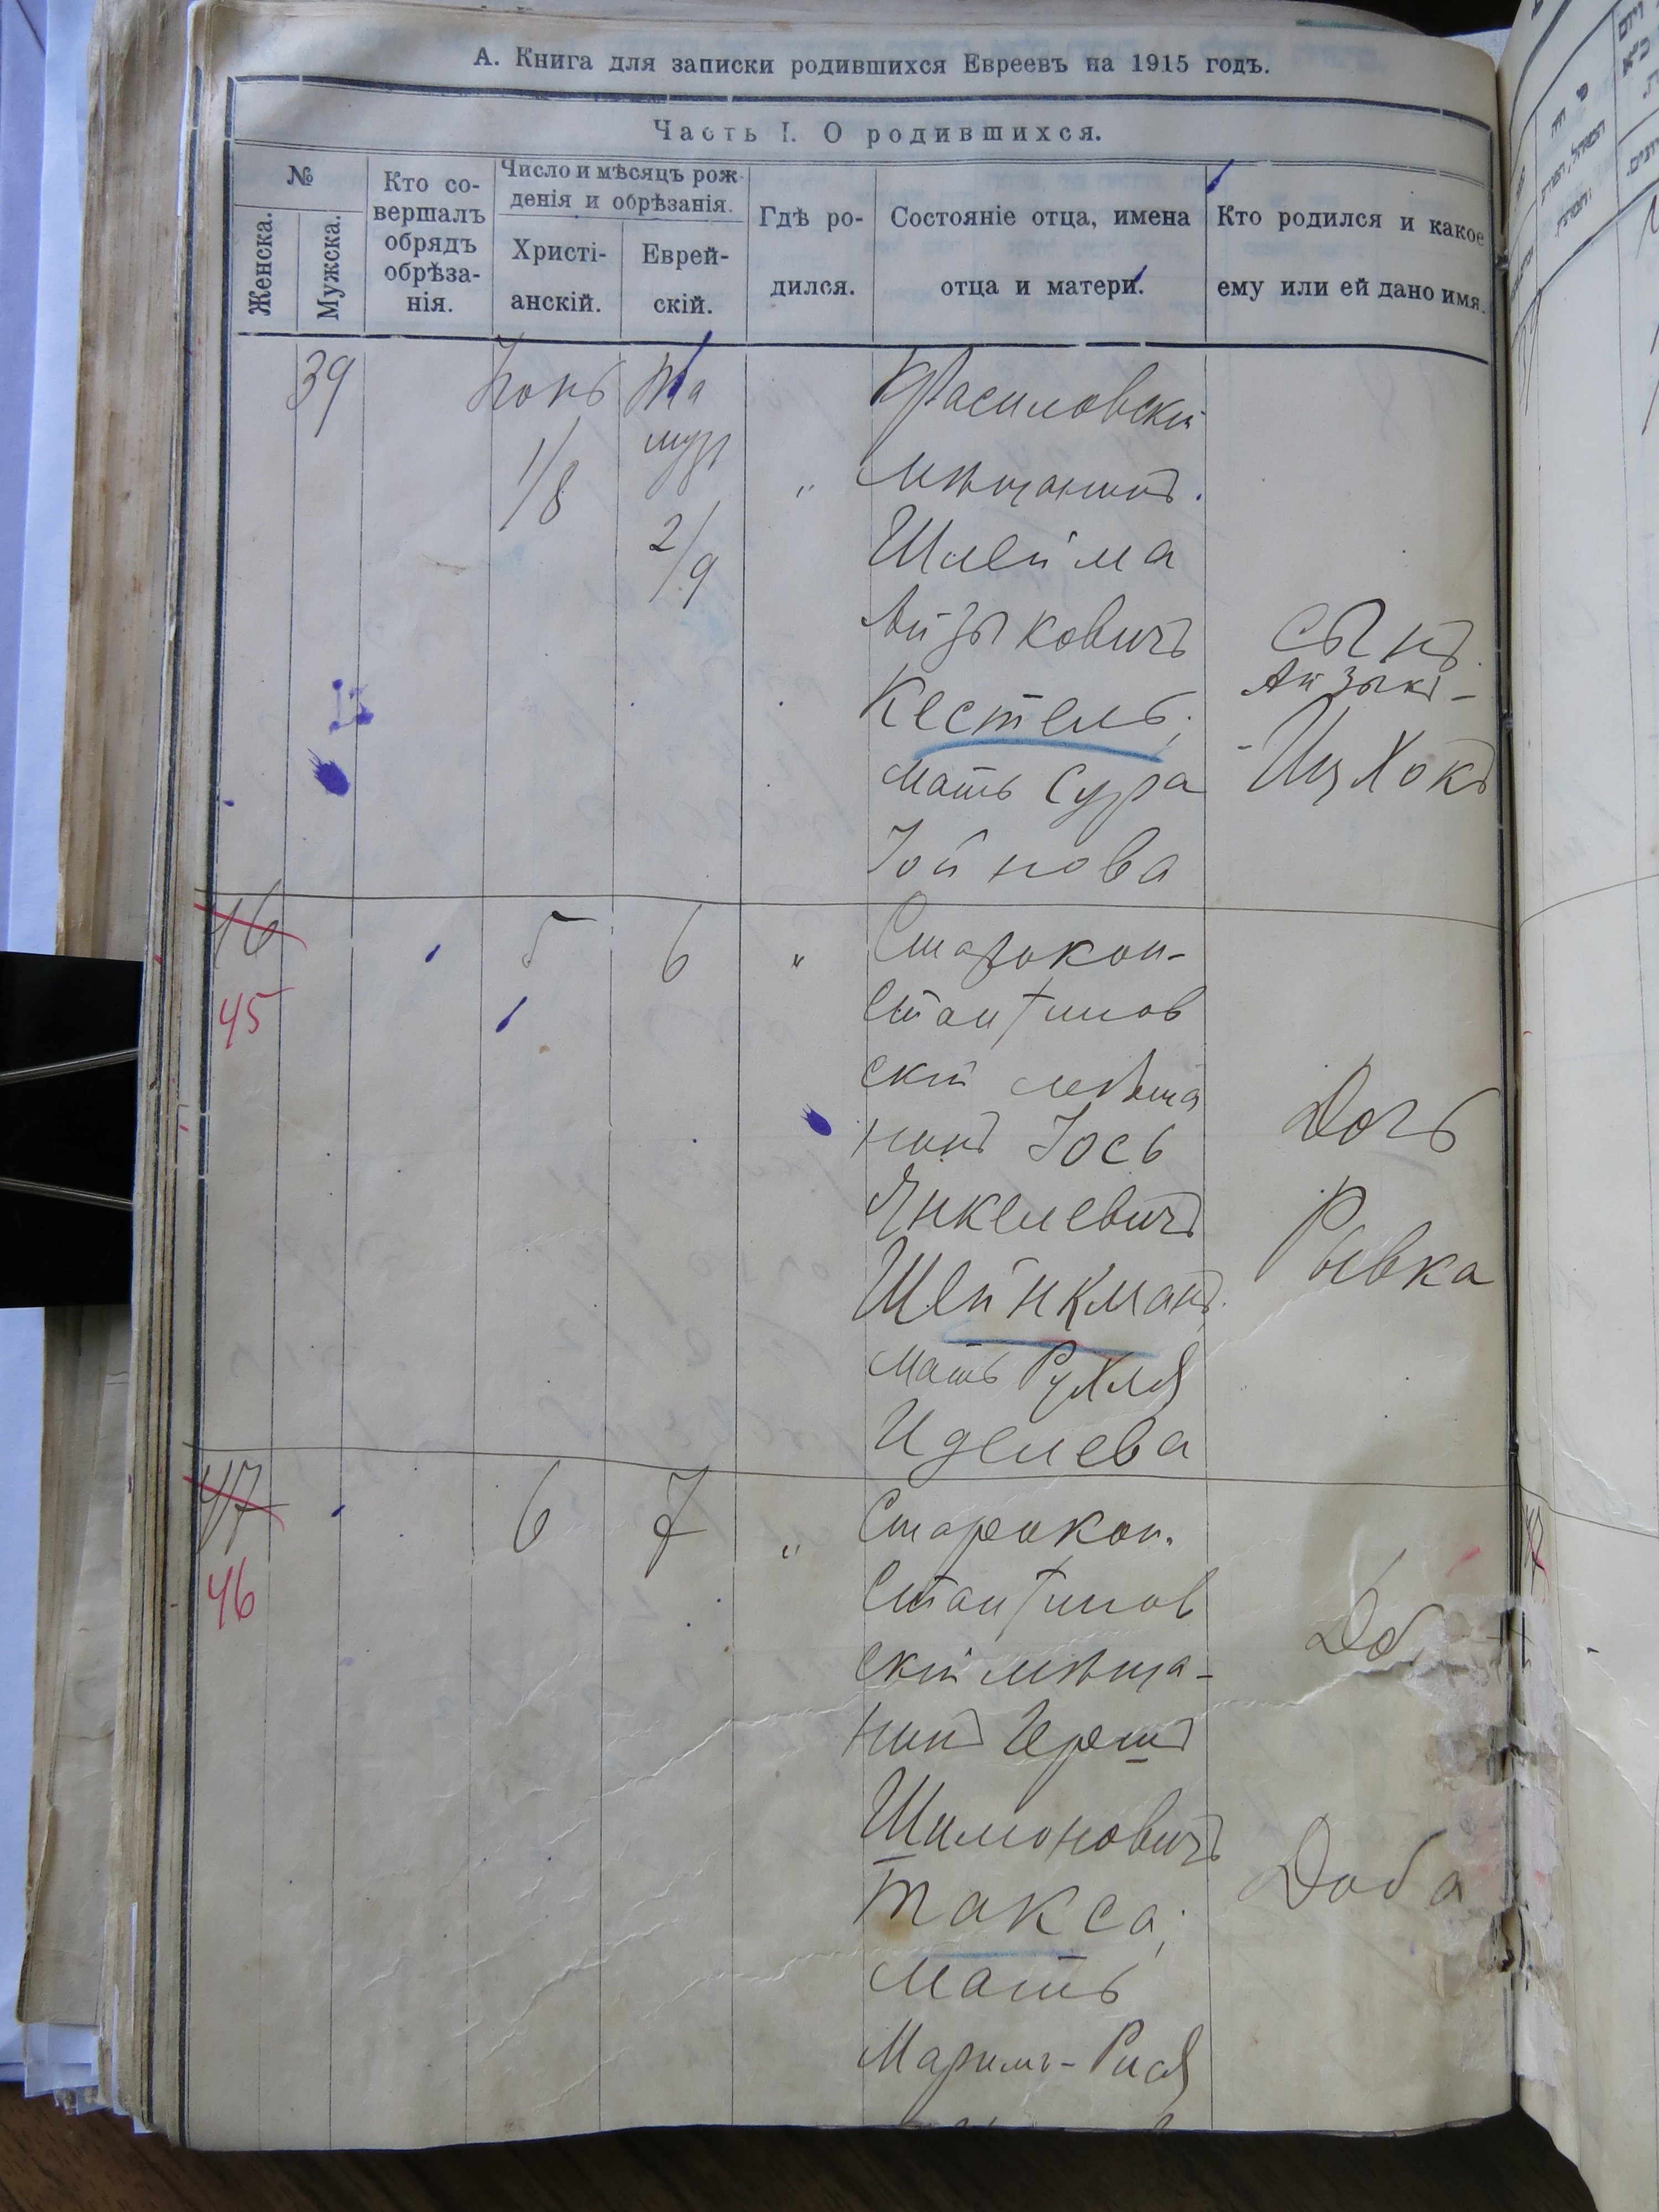 А. Книга для записки родившихся Евреевъ на 1915 годъ.
Часть I. О родившихся.
№
Женска.
Мужска.
Кто со-
вершалъ
обрядъ
обрѣза-
нія.
Число и мѣсяцъ рож-
денія и обрѣзанія.
Христі-
анскій.
Еврей-
скій.
Гдѣ ро-
дился.
Состояніе отца, имена
отца и матери.
Кто родился и какое
ему или ей дано имя.
39
Іюнь
1/8
Та
музъ
2/9
"
Красиловскій
мѣщанинъ.
Шлейма
Айзыковичъ
Кестель;
мать Сура
Іойнова
сынъ
Айзыкъ-
-Ицхокъ
46
45
5
6
"
Старокон-
стантинов
скій мѣща
нинъ Іось
Янкелевичъ
Шейнкманъ
мать Рухля
Иделева
Дочь
Рывка
47
46
6
7
"
Старокон-
стантинов
скій мѣща-
нинъ Герш
Шимоновичъ
Такса;
мать
Маримъ-Рися
До
Доба